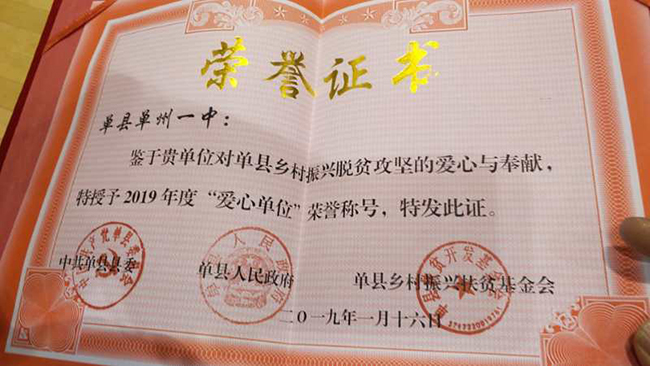 荣誉证书
单县单州一中：
鉴于贵单位对单县乡村振兴脱贫攻坚的爱心与奉献，
特授予2019年度“爱心单位”荣誉称号，特发此证。
中共单县县委 单县人民政府 单县乡村振兴扶贫基金会
二〇一九年一月十六日